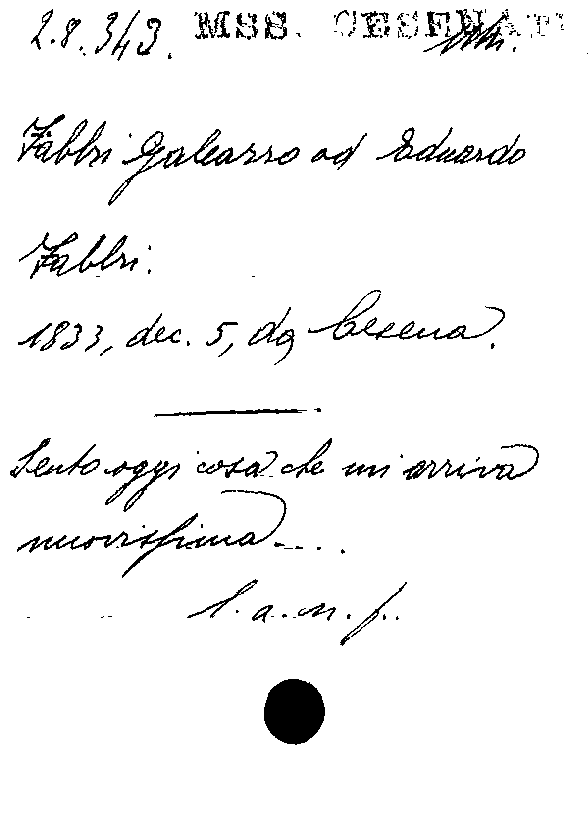 2.8.343. MSS. CESENATI
Fabbri Galeazzo ad Eduardo
Fabbri.
1833, dec. 5, da Cesena.
Sento oggi cosa che mi arriva
nuovissima....
l. a. n. f..